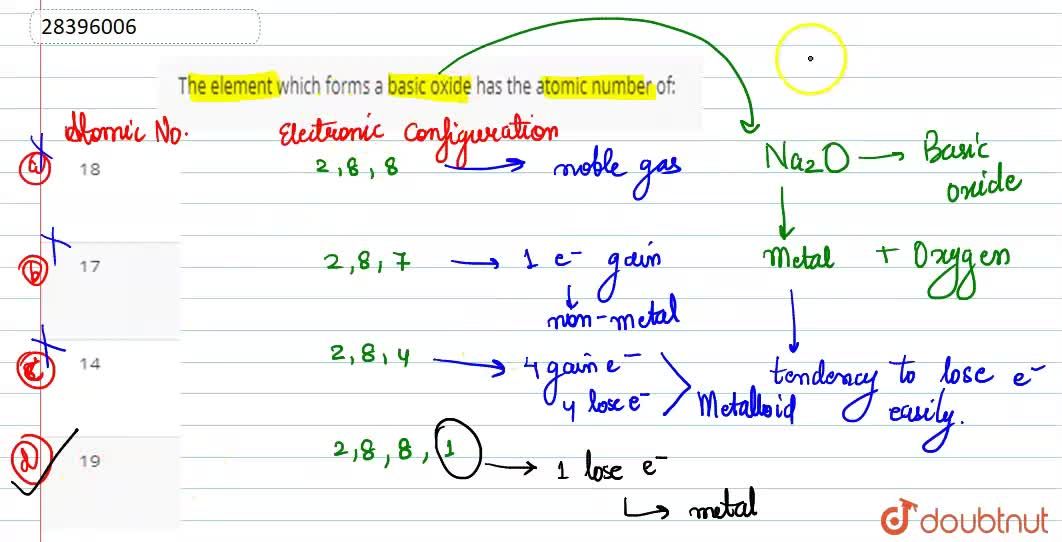 28396006
The element which forms a basic oxide has the atomic number of:
Atomic No. Electronic Configuration
a 18 2,8,8 → noble gas
Na2O → Basic oxide
b 17 2,8,7 → 1 e⁻ gain
↓
non-metal
Metal + Oxygen
c 14 2,8,4 → 4 gain e⁻
4 lose e⁻
Metalloid
tendency to lose e⁻
easily.
d 19 2,8,8,1 → 1 lose e⁻
↳ metal
doubtnut